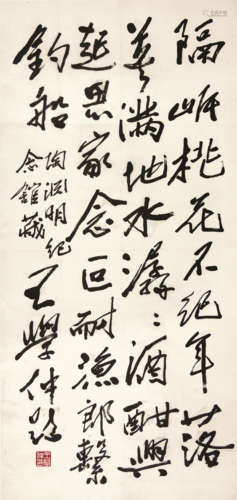 隔岸桃花不纪年落
英满地水潺:酒酣兴
起思家念叵耐渔郎系
钓船
陶渊明纪
念馆藏
王学仲题